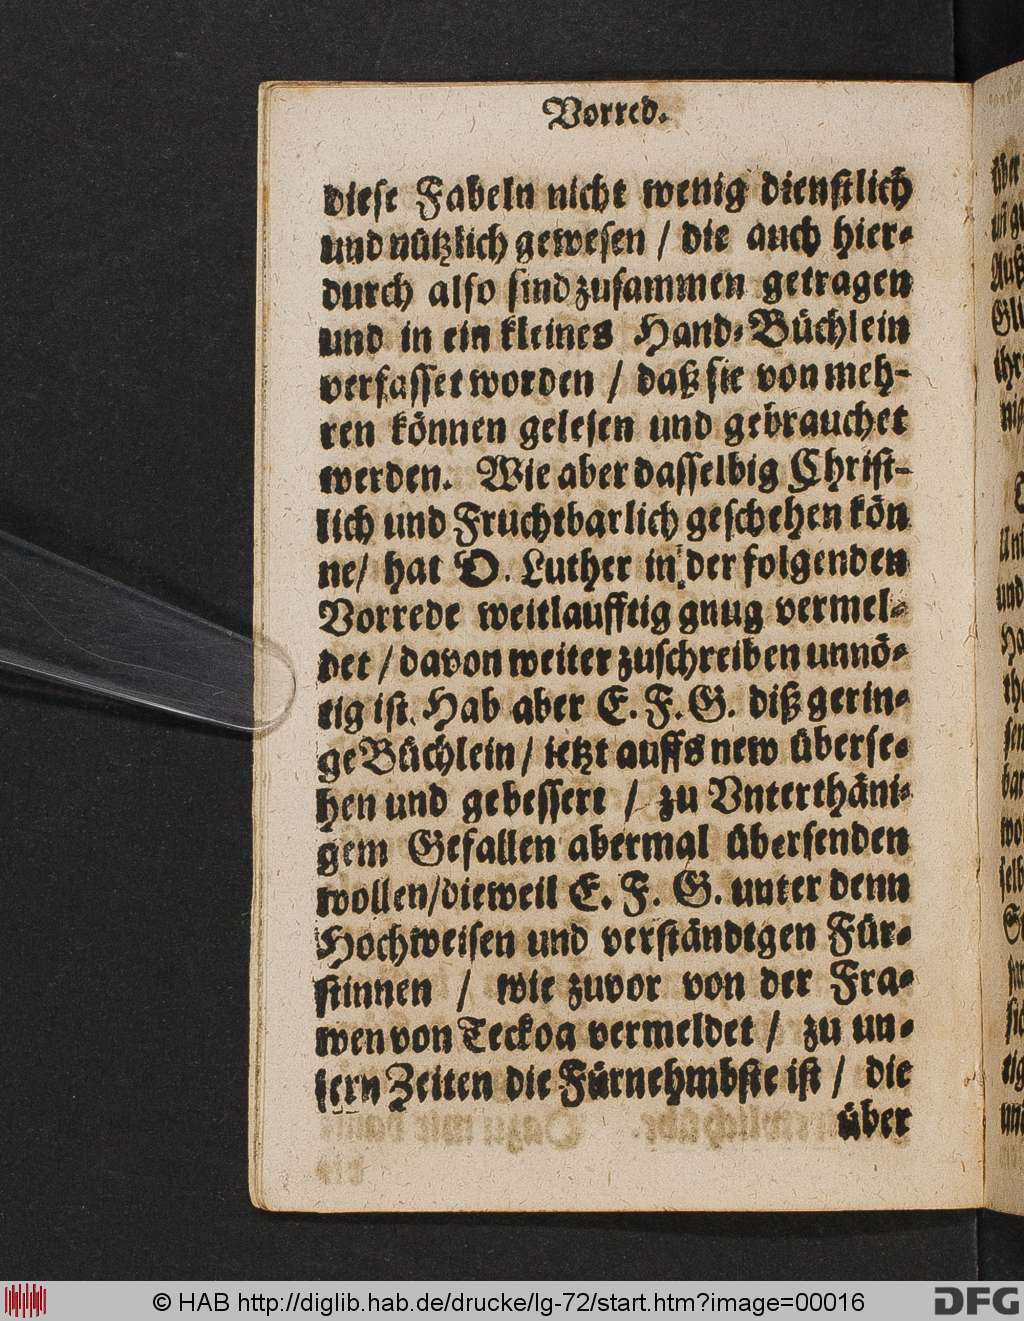 Vorred.
diese Fabeln nicht wenig dienstlich
und nützlich gewesen / die auch hier-
durch also sind zusammen getragen
und in ein kleines Hand-Büchlein
verfasset worden / daß sie von meh-
ren können gelesen und gebrauchet
werden. Wie aber dasselbig Christ-
lich und Fruchtbarlich geschehen kön
ne / hat D. Luther in der folgenden
Vorrede weitlaufftig gnug vermel-
det / davon weiter zuschreiben unnö-
tig ist. Hab aber E. F. G. diß gerin-
ge Büchlein / ietzt auffs new überse-
hen und gebessert / zu Vnterthäni-
gem Gefallen abermal übersenden
wollen / dieweil E. F. G. unter denn
Hochweisen und verständigen Für-
stinnen / wie zuvor von der Fra-
wen von Teckoa vermeldet / zu un-
sern Zeiten die Fürnehmbste ist / die
über
© HAB http://diglib.hab.de/drucke/lg-72/start.htm?image=00016
DFG